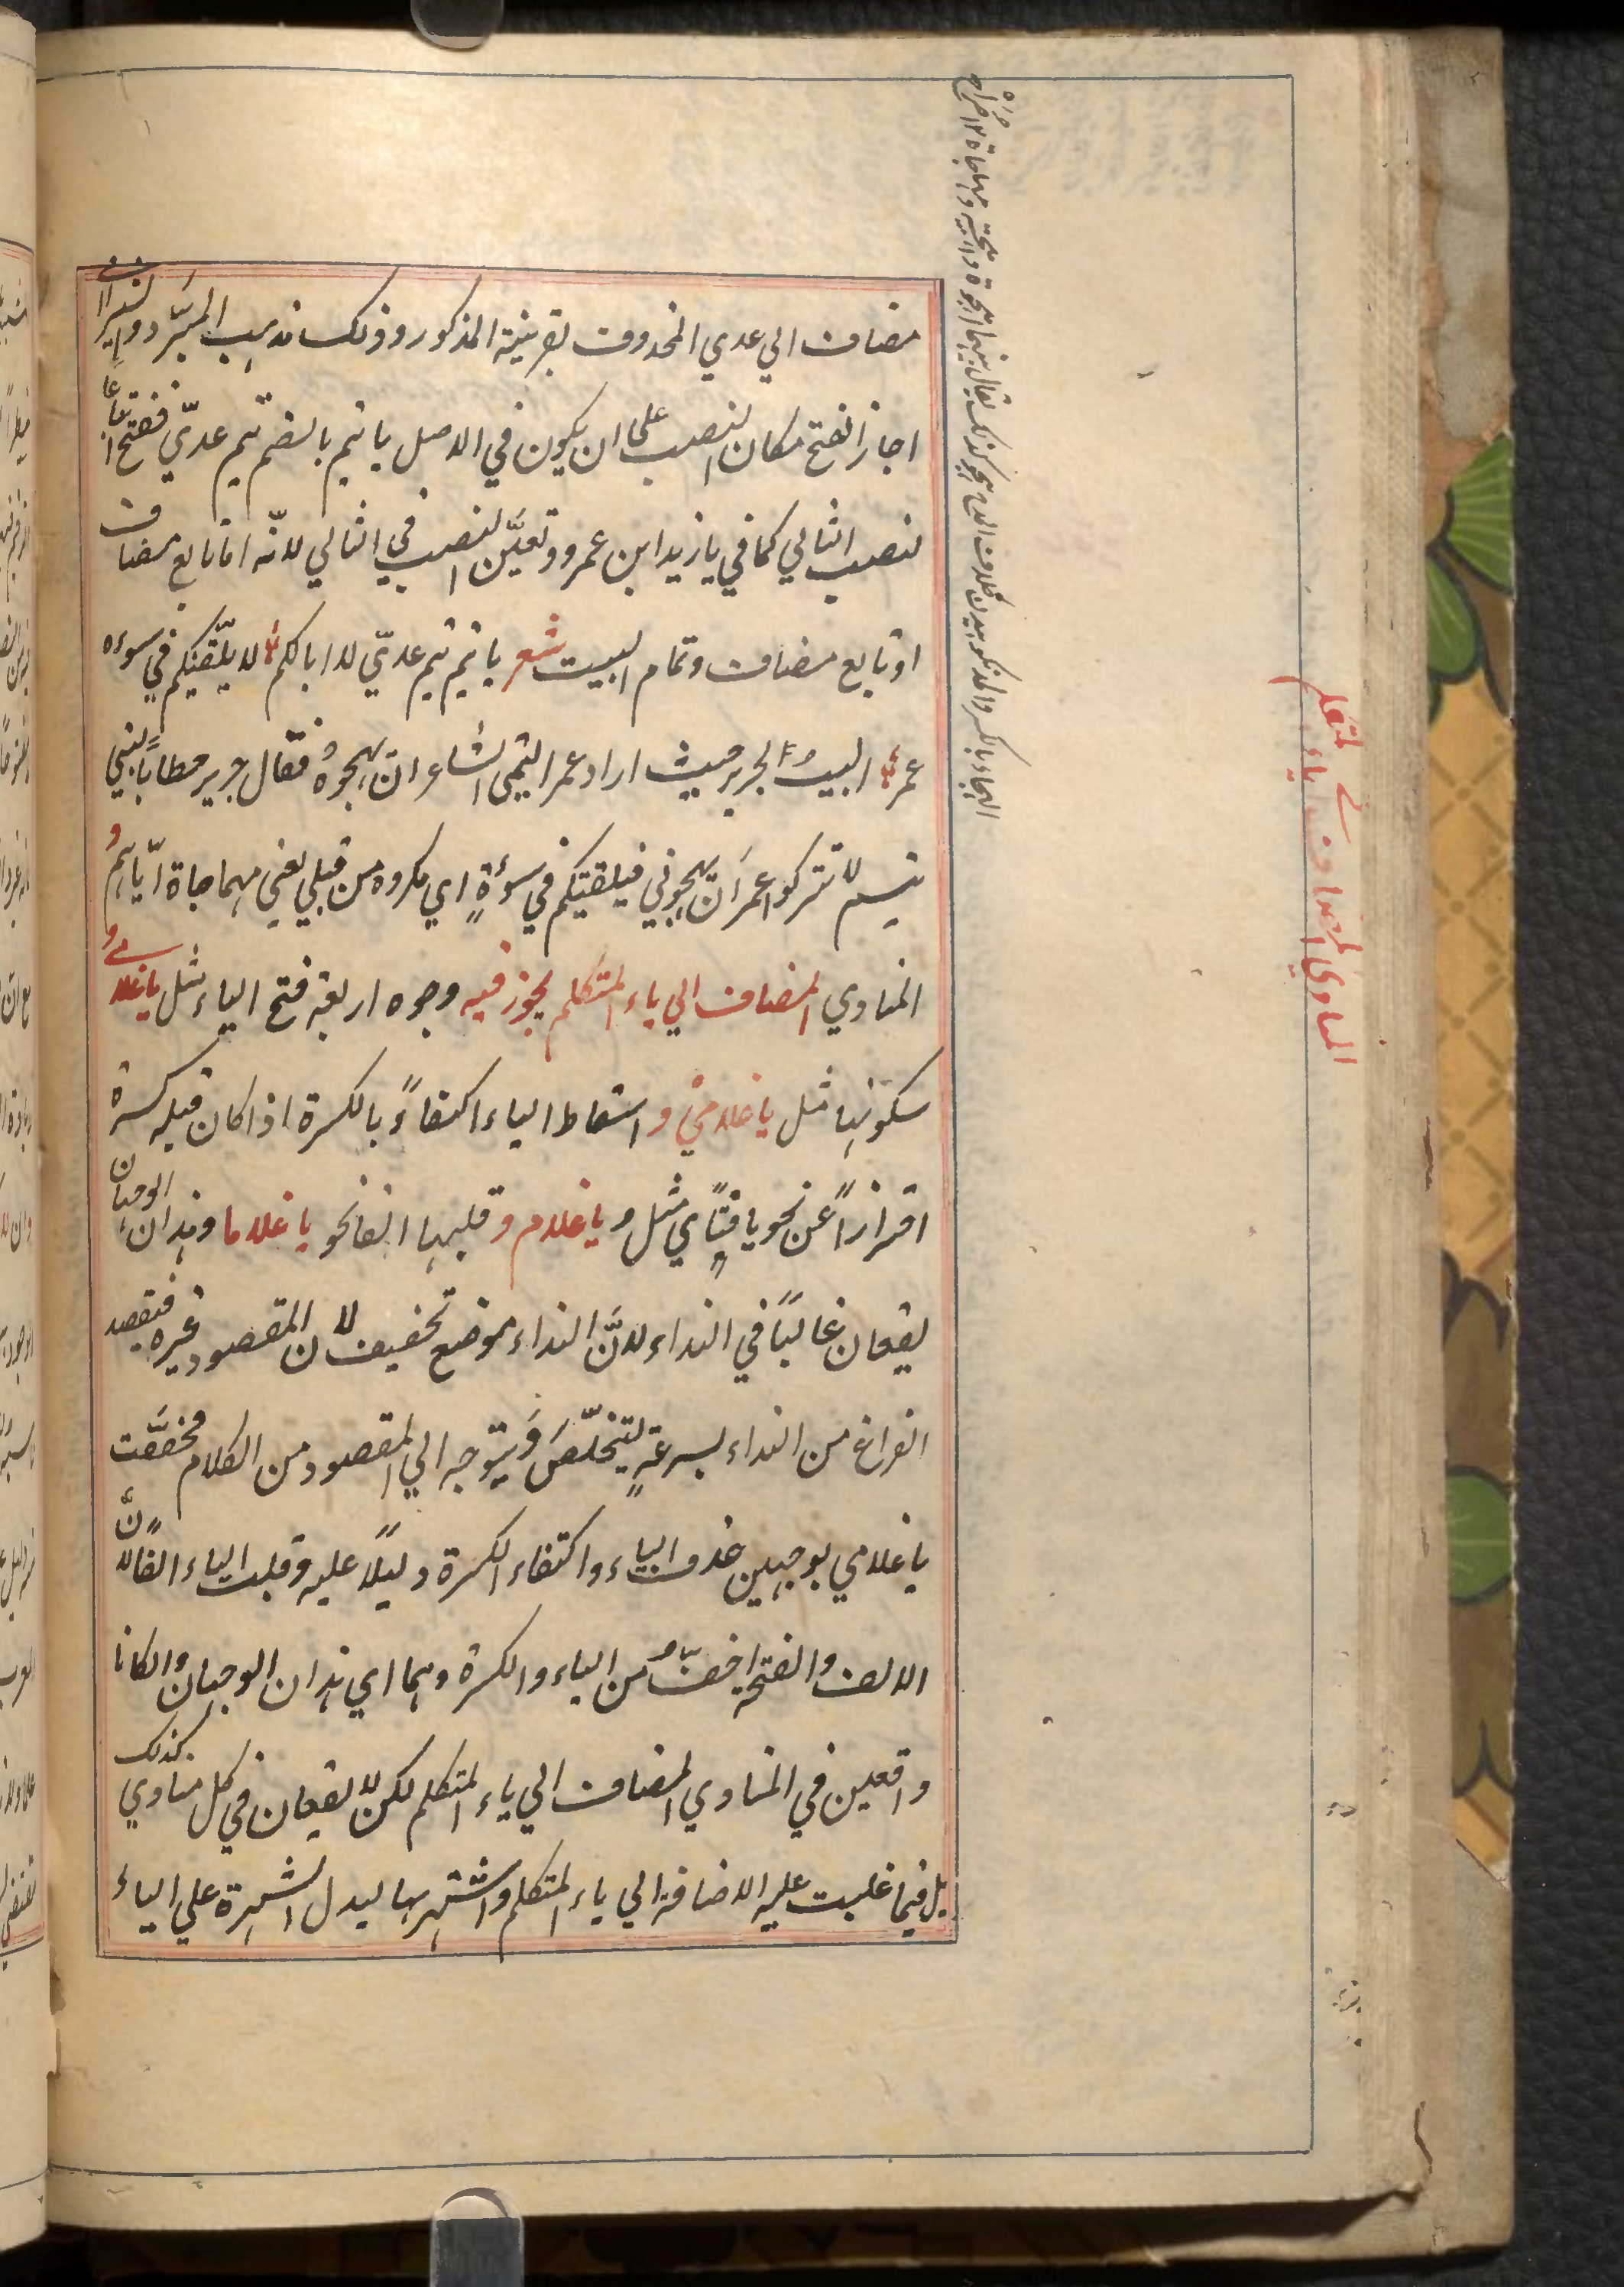 مضاف الي عدي المحذوف بقرينة المذكور وذلك مذهب المبرّد والسيرافي
اجاز الفتح مكان النصب على ان يكون في الاصل يا تيم بالضم تيم عديّ ففتح اتباعا
لنصب الثاني كما في يا زيد ابن عمرو وتعيّن النصب في الثاني لانّه اما تابع مضاف
او تابع مضاف وتمام البيت شعر يا تيم تيم عديّ لا ابا لكم لا يلقينكم في سوءة
عمر البيت لجرير حيث اراد عمر التيمي الشاعر ان يهجوه فقال جرير خطابا لبني
تيم لا تتركوا عمر ان يهجوني فيلقيكم في سوءةٍ اي مكروه من قبلي يعني مهاجاة اياهم و
المنادي المضاف الي ياء المتكلم يجوز فيه وجوه اربعة فتح الياء مثل يا غلامي و
سكونها مثل يا غلامي و اسقاط الياء اكتفاءً بالكسرة اذا كان قبله كسرة
احترازاً عن نحو يا فتاي مثل و يا غلام و قلبها الفا نحو يا غلاما وهذان الوجهان
يقعان غالبًا في النداء لانّ النداء موضع تخفيف لان المقصود غيره فيقصد
الفراغ من النداء بسرعةٍ ليتخلّص ويتوجه الي المقصود من الكلام فخففت
يا غلامي بوجهين حذف الياء واكتفاء الكسرة دليلاً عليه وقلب الياء الفًا لانّ
الالف والفتحة اخفّ من الياء والكسرة وهما اي هذان الوجهان وان كانا
واقعين في المنادي المضاف الي ياء المتكلم لكن لا يقعان في كل منادي كذلك
بل فيما غلبت عليه الاضافة الي ياء المتكلم واشتهر بها ليدل الشهرة علي الياء
المنادي المضاف الي ياء المتكلم